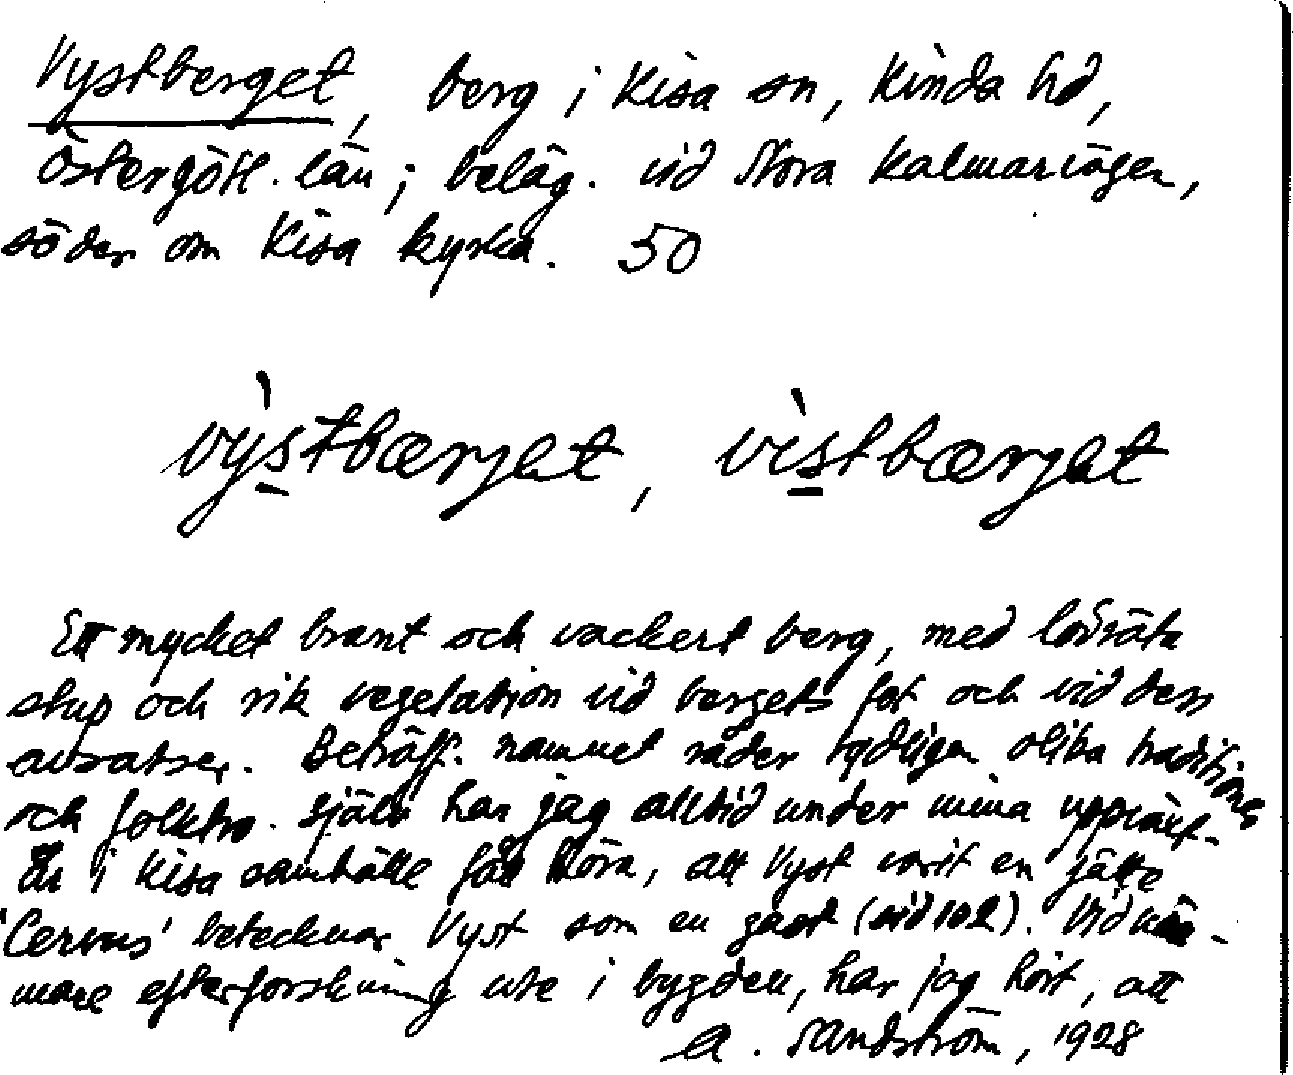 Vystberget, berg i Kisa sn, Kinda hd,
Östergötl. län; beläg. vid Norra Kalmarvägen,
söder om Kisa kyrka. 50
vỳstbærjet, vìstbærjet
Ett mycket brant och vackert berg, med lodräta
stup och rik vegetation vid bergets fot och vid dess
avsatser. Beträff. namnet råder tydligen olika traditioner
och folktro. Själv har jag alltid under mina uppväxt-
år i Kisa samhälle fått höra, att Vyst varit en jätte
'Cervus' betecknar Vyst som en gast (sid 102). Vid när-
mare efterforskning ute i bygden, har jag hört, att
A. Sandström, 1928